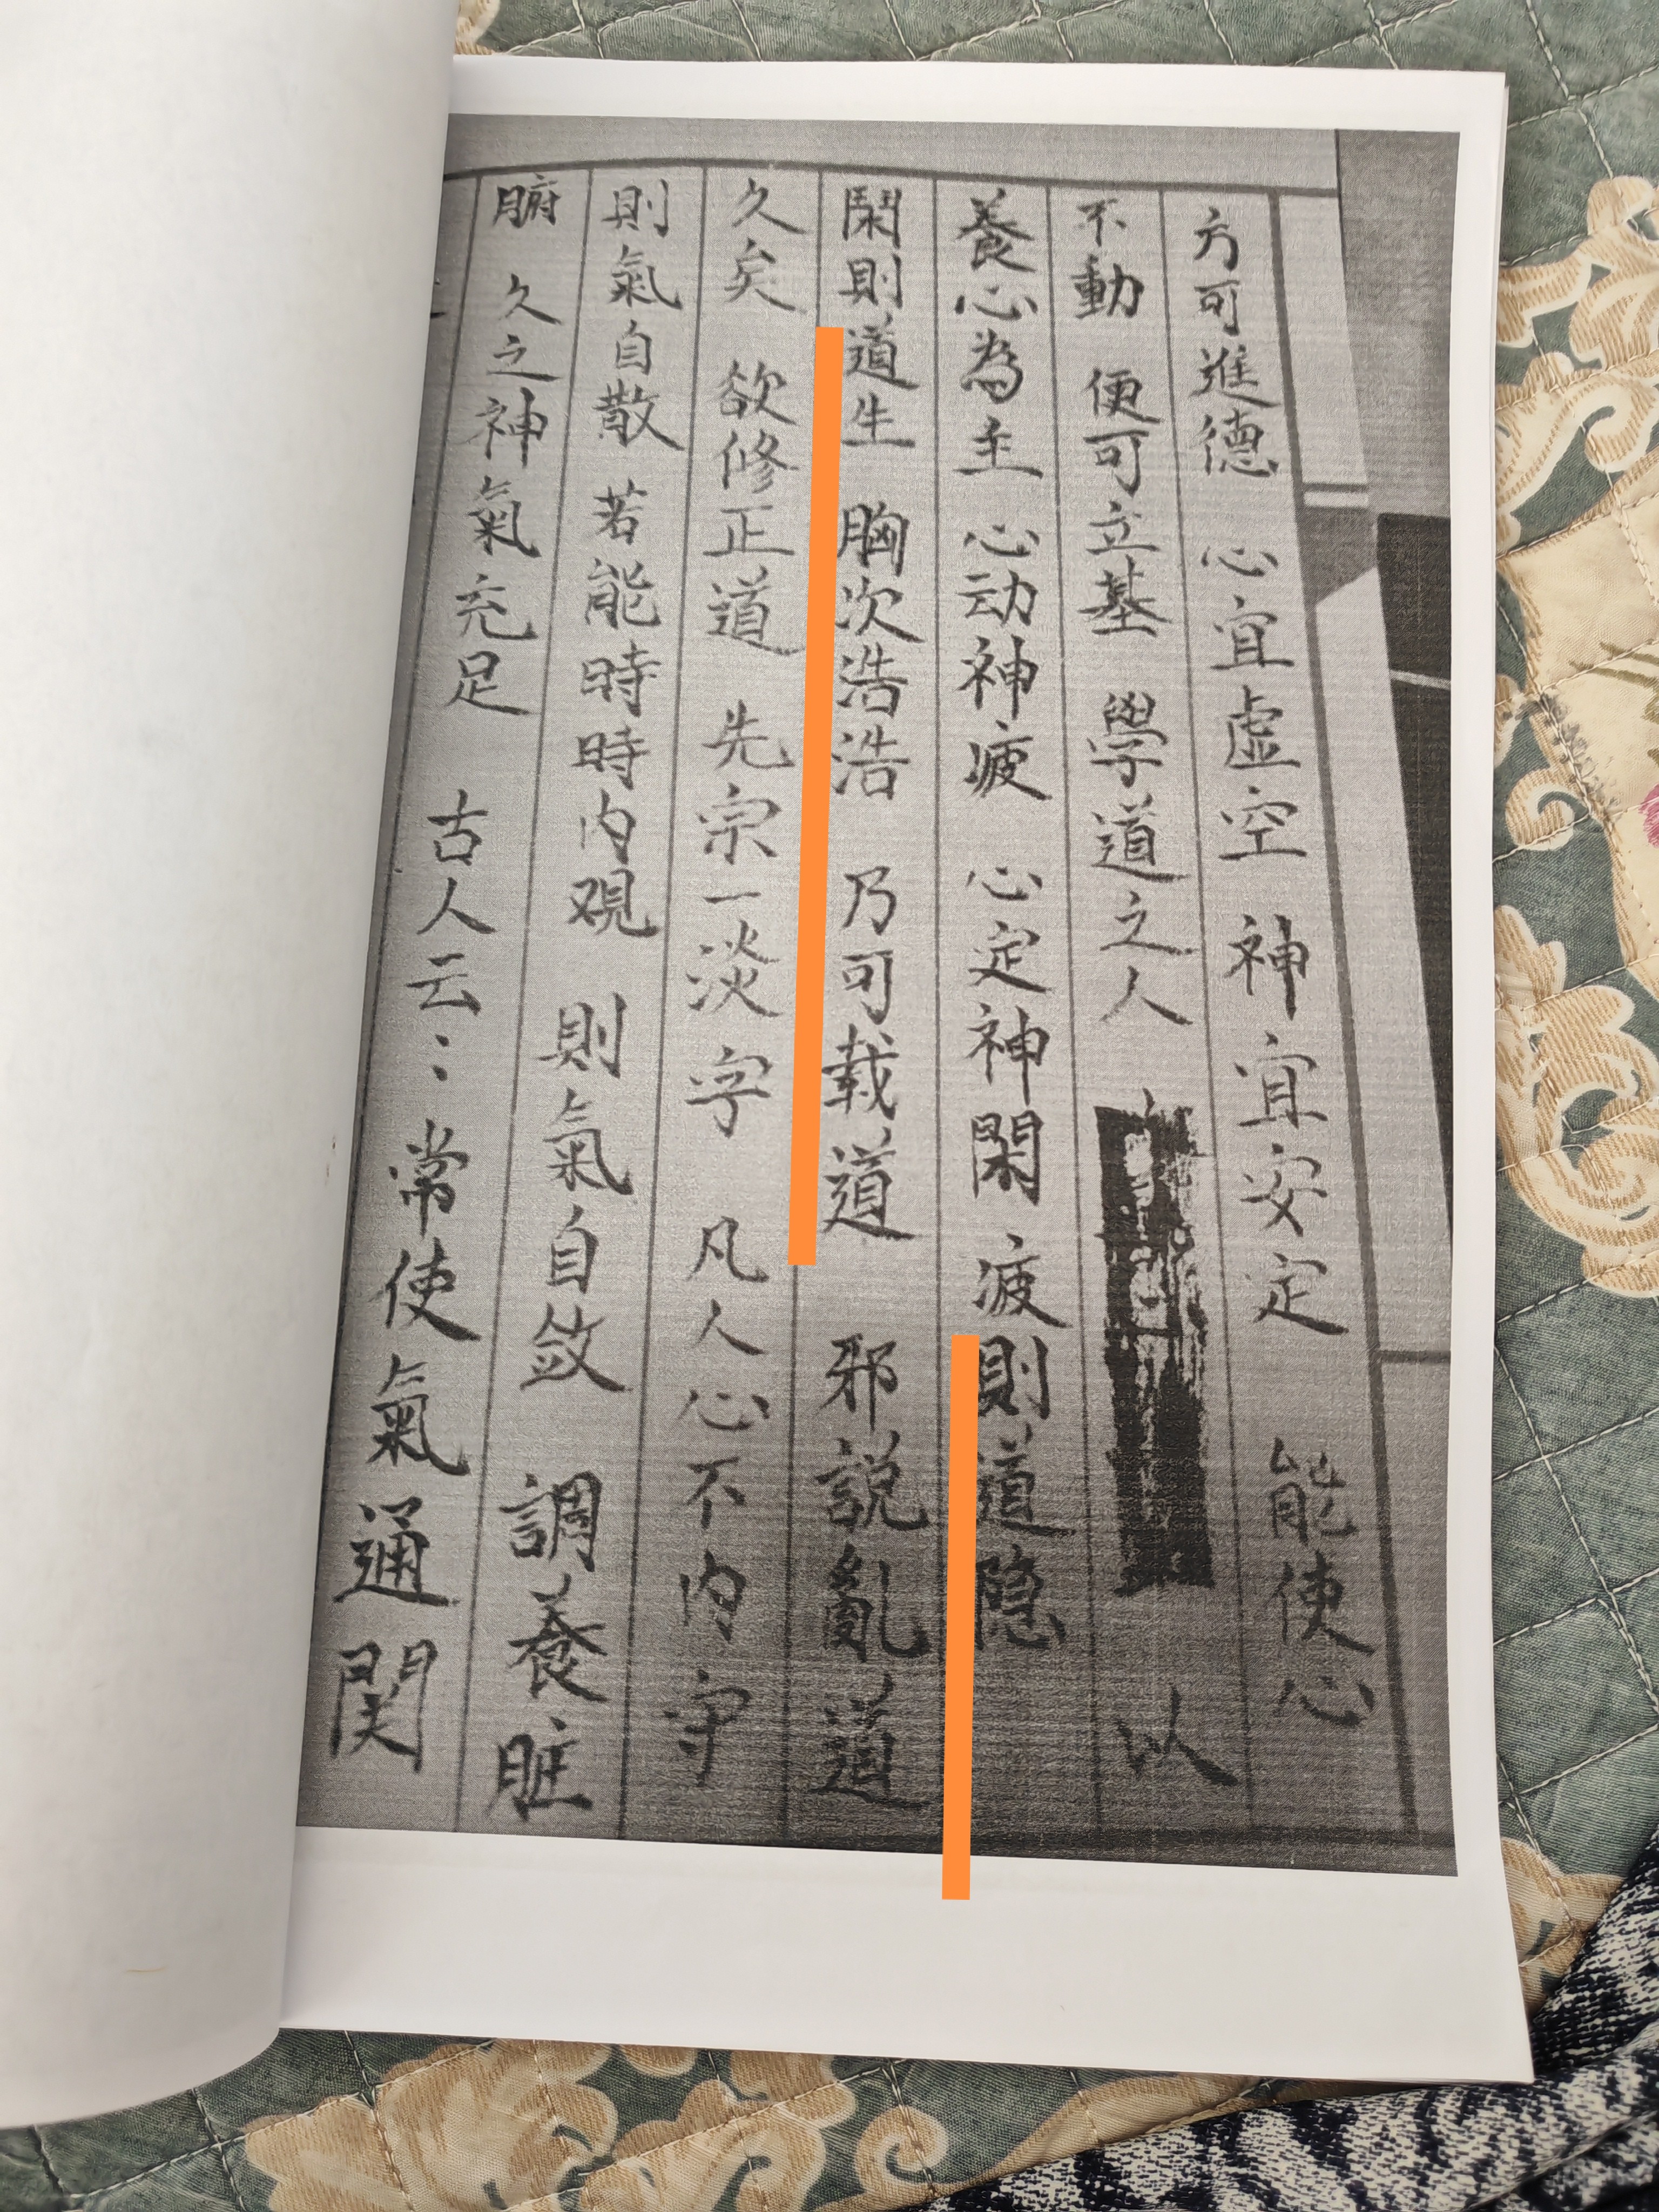 方可進德 心宜虛空 神宜安定 能使心
不動 便可立基 學道之人 以
養心為主 心动神疲 心定神閑 疲則道隐
閑則道生 胸次浩浩 乃可载道 邪説亂道
久矣 欲修正道 先宗一淡字 凡人心不内守
則氣自散 若能時時内观 則氣自斂 調養脏
腑 久之神氣充足 古人云：常使氣通関